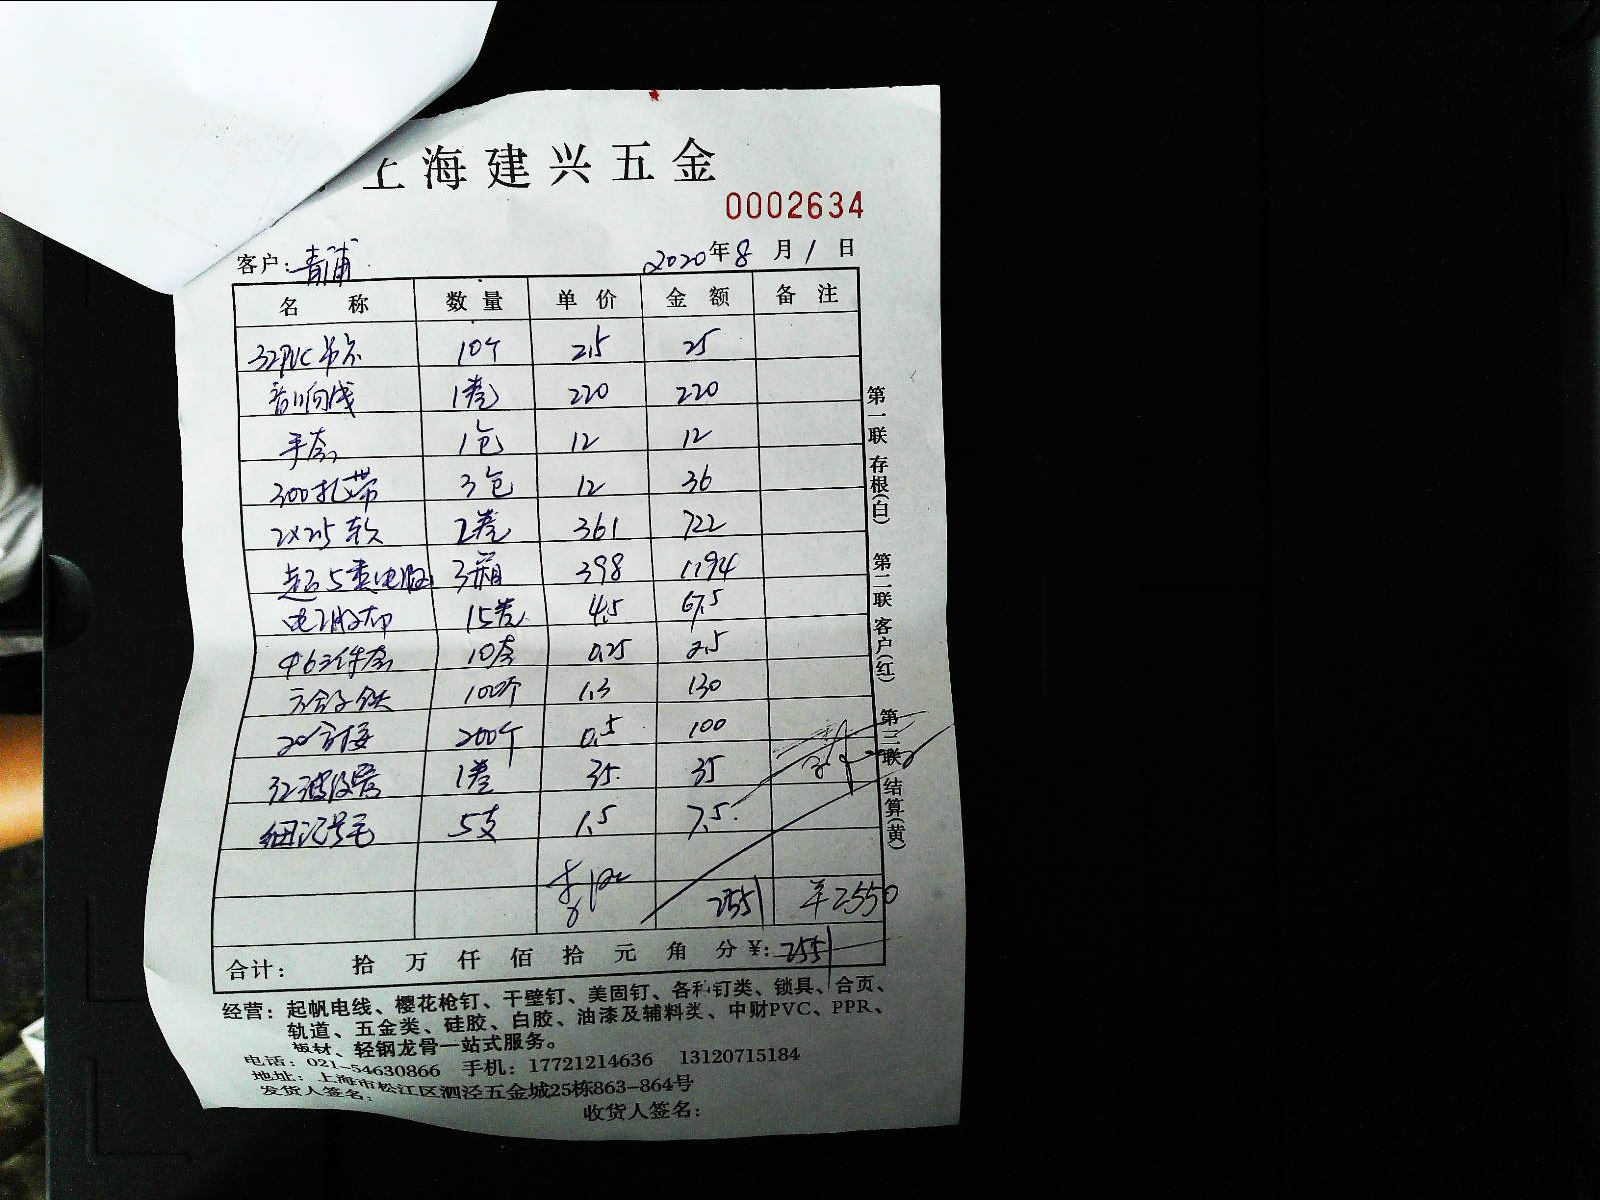 上海建兴五金
0002634
客户: 青浦 2020年8月1日
名称 数量 单价 金额 备注
32PVC吊卡 10个 2.5 25
音响线 1卷 220 220
手套 1包 12 12
300扎带 3包 12 36
2×2.5软 2卷 361 722
超5类电脑 3箱 398 1194
电工胶布 15卷 4.5 67.5
Φ6三件套 10套 0.25 2.5
方合子铁 100个 1.3 130
20直接 200个 0.5 100
32波纹管 1卷 35 35
细记号笔 5支 1.5 7.5
2551 ¥2550
合计: 拾 万 仟 佰 拾 元 角 分 ¥: 2551
经营: 起帆电线、樱花枪钉、干壁钉、美固钉、各种钉类、锁具、合页、
轨道、五金类、硅胶、白胶、油漆及辅料类、中财PVC、PPR、
板材、轻钢龙骨一站式服务。
电话: 021-54630866 手机: 17721214636 13120715184
地址: 上海市松江区泗泾五金城25栋863-864号
发货人签名: 收货人签名:
第一联 存根(白) 第二联 客户(红) 第三联 结算(黄)